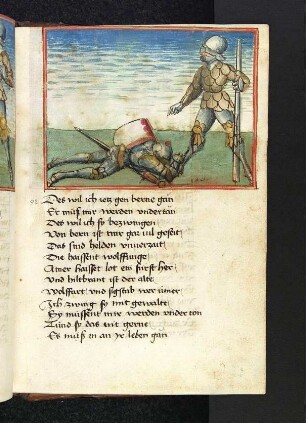 Des wil ich yetz gen berne gan
Er muß mir werden vndertan
Des wil ich sy bezwingen
Von bern ist mir gar vil geseit
Das sind helden vnuerzait
Die haissent wolffinge
Ainer haisset lot ein furst her
Vnd hiltbrant ist der alte
Wolffart vnd sigstab wer
Ich zwing sy mit gewalte
Sy müssent mir werden vnder ton
Vnd so das nit gerne
Es muß in an ir leben gan